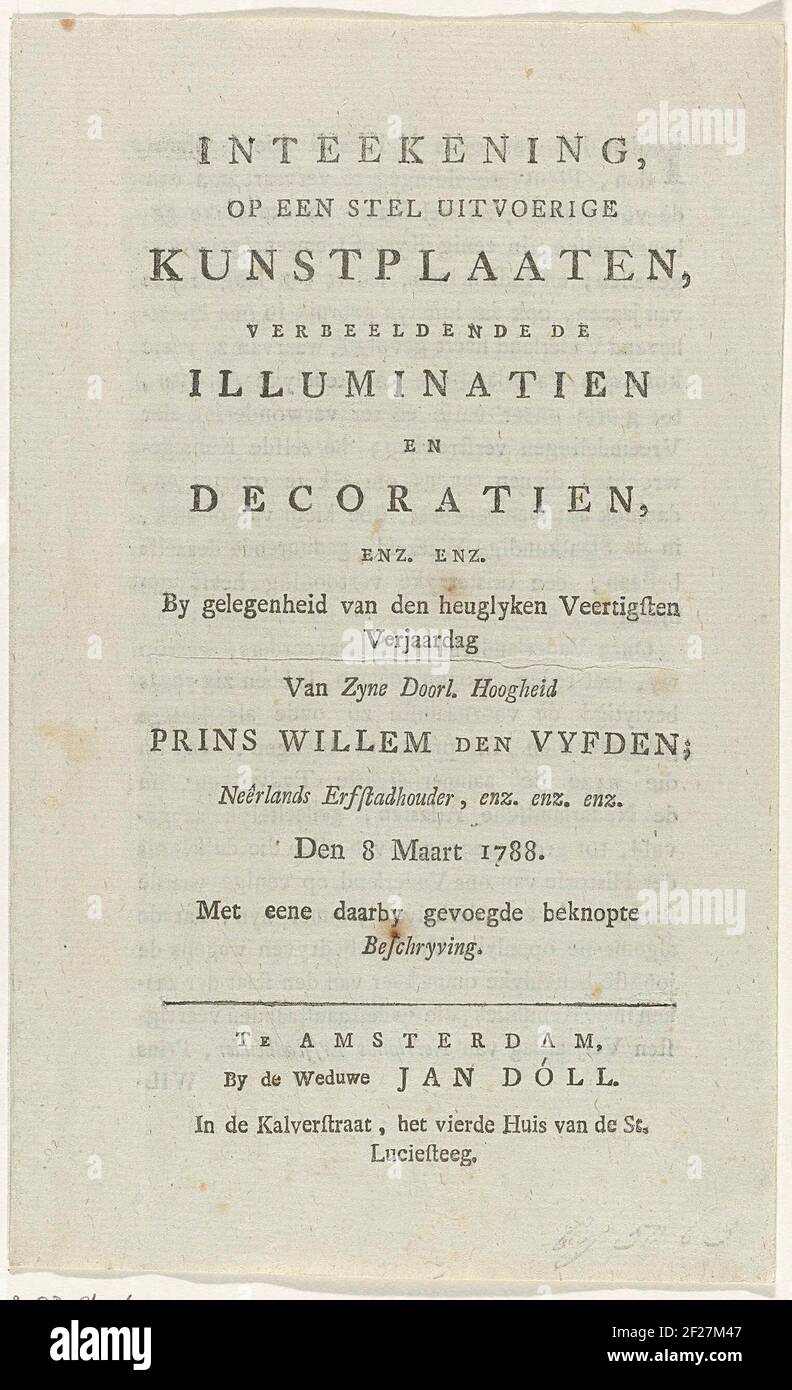 INTEEKENING,
OP EEN STEL UITVOERIGE
KUNSTPLAATEN,
VERBEELDENDE DE
ILLUMINATIEN
EN
DECORATIEN,
ENZ. ENZ.
By gelegenheid van den heuglyken Veertigſten
Verjaardag
Van Zyne Doorl. Hoogheid
PRINS WILLEM DEN VYFDEN;
Neêrlands Erfſtadhouder, enz. enz. enz.
Den 8 Maart 1788.
Met eene daarby gevoegde beknopte
Beſchryving.
TE AMSTERDAM,
By de Weduwe JAN DÓLL.
In de Kalverſtraat, het vierde Huis van de St.
Lucieſteeg.
alamy
Image ID: 2F27M47
www.alamy.com